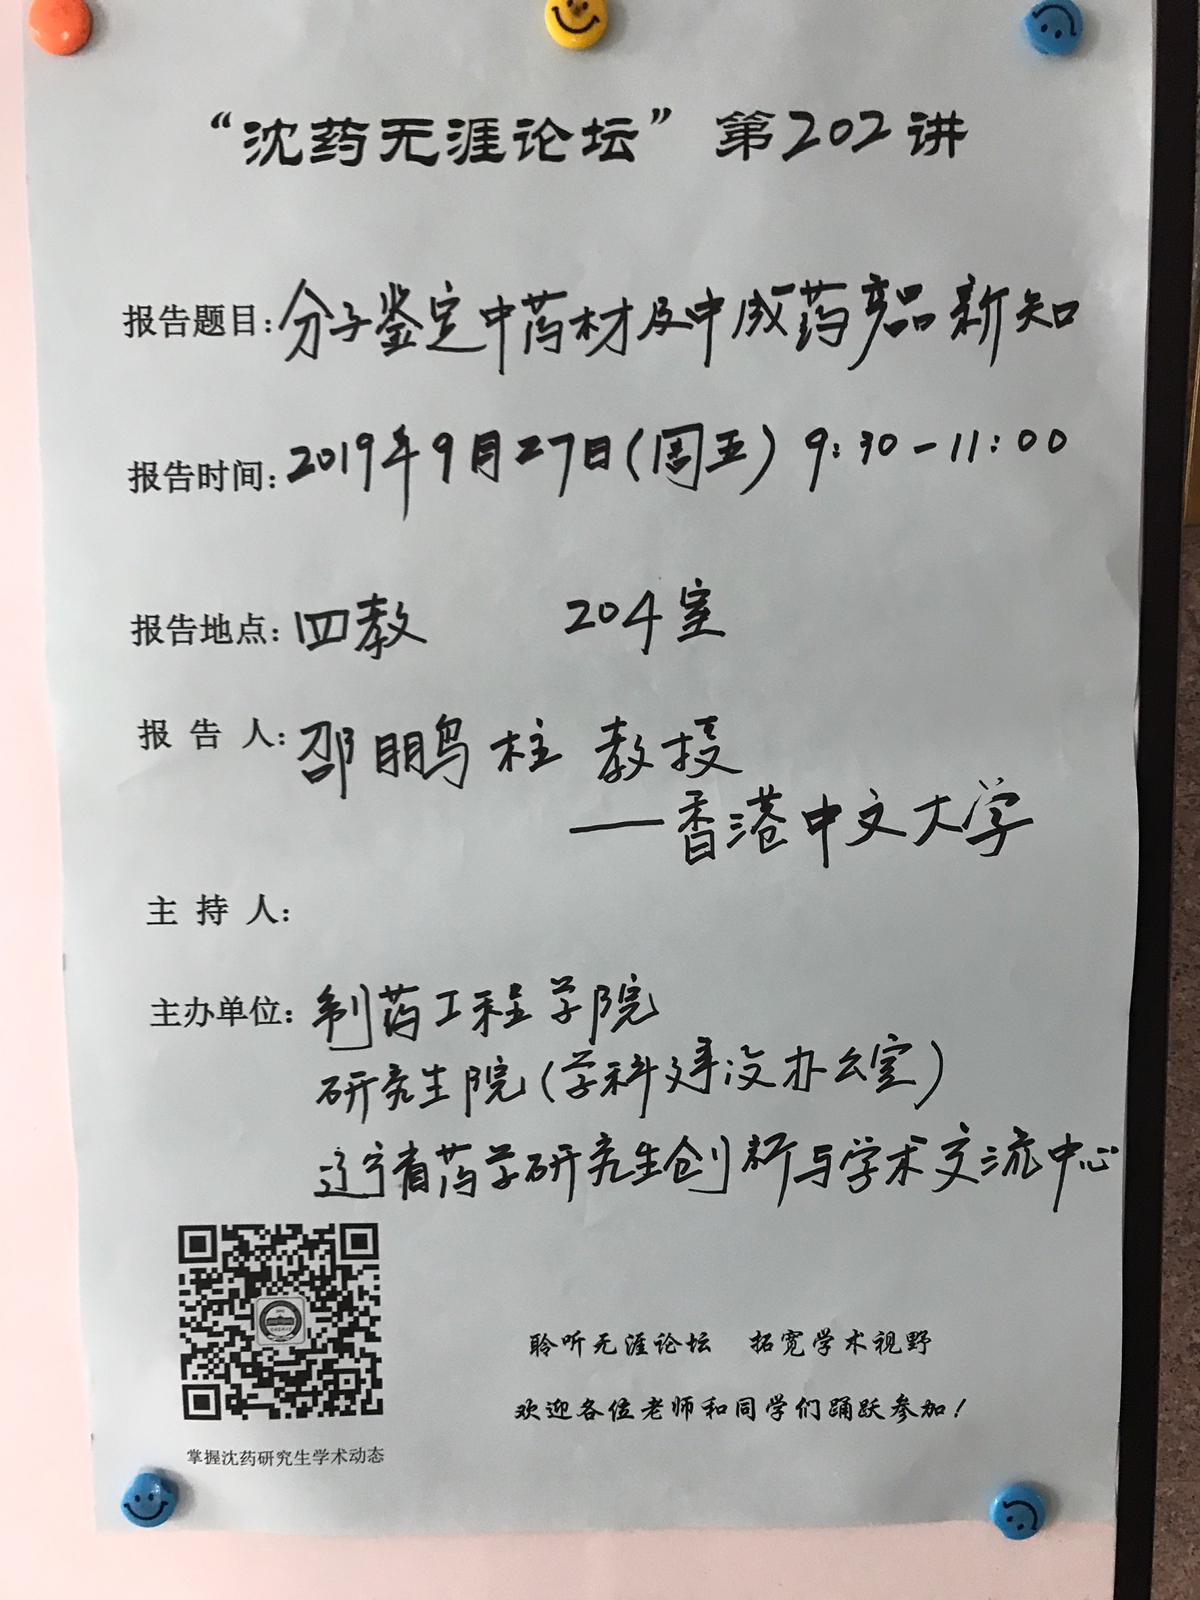 “沈药无涯论坛” 第202讲
报告题目：分子鉴定中药材及中成药产品新知
报告时间：2019年9月27日(周五) 9:30-11:00
报告地点：四教 204室
报 告 人：邵鹏柱 教授
——香港中文大学
主 持 人：
主办单位：制药工程学院
研究生院(学科建设办公室)
辽宁省药学研究生创新与学术交流中心
聆听无涯论坛 拓宽学术视野
欢迎各位老师和同学们踊跃参加！
掌握沈药研究生学术动态